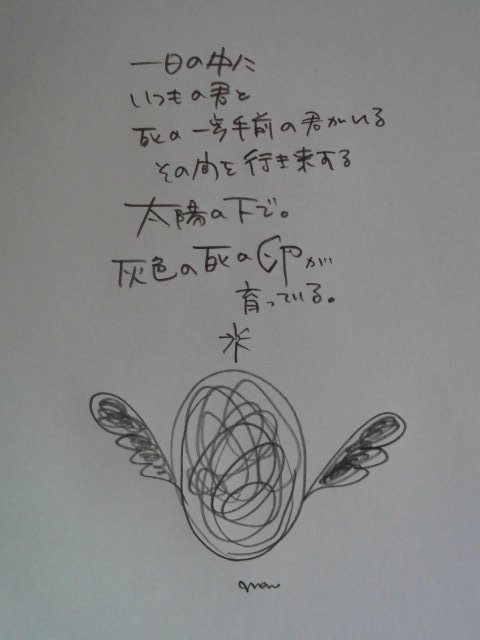 一日の中に
いつもの君と
死の一歩手前の君がいる
その間を行き来する
太陽の下で。
灰色の死の卵が
育っている。